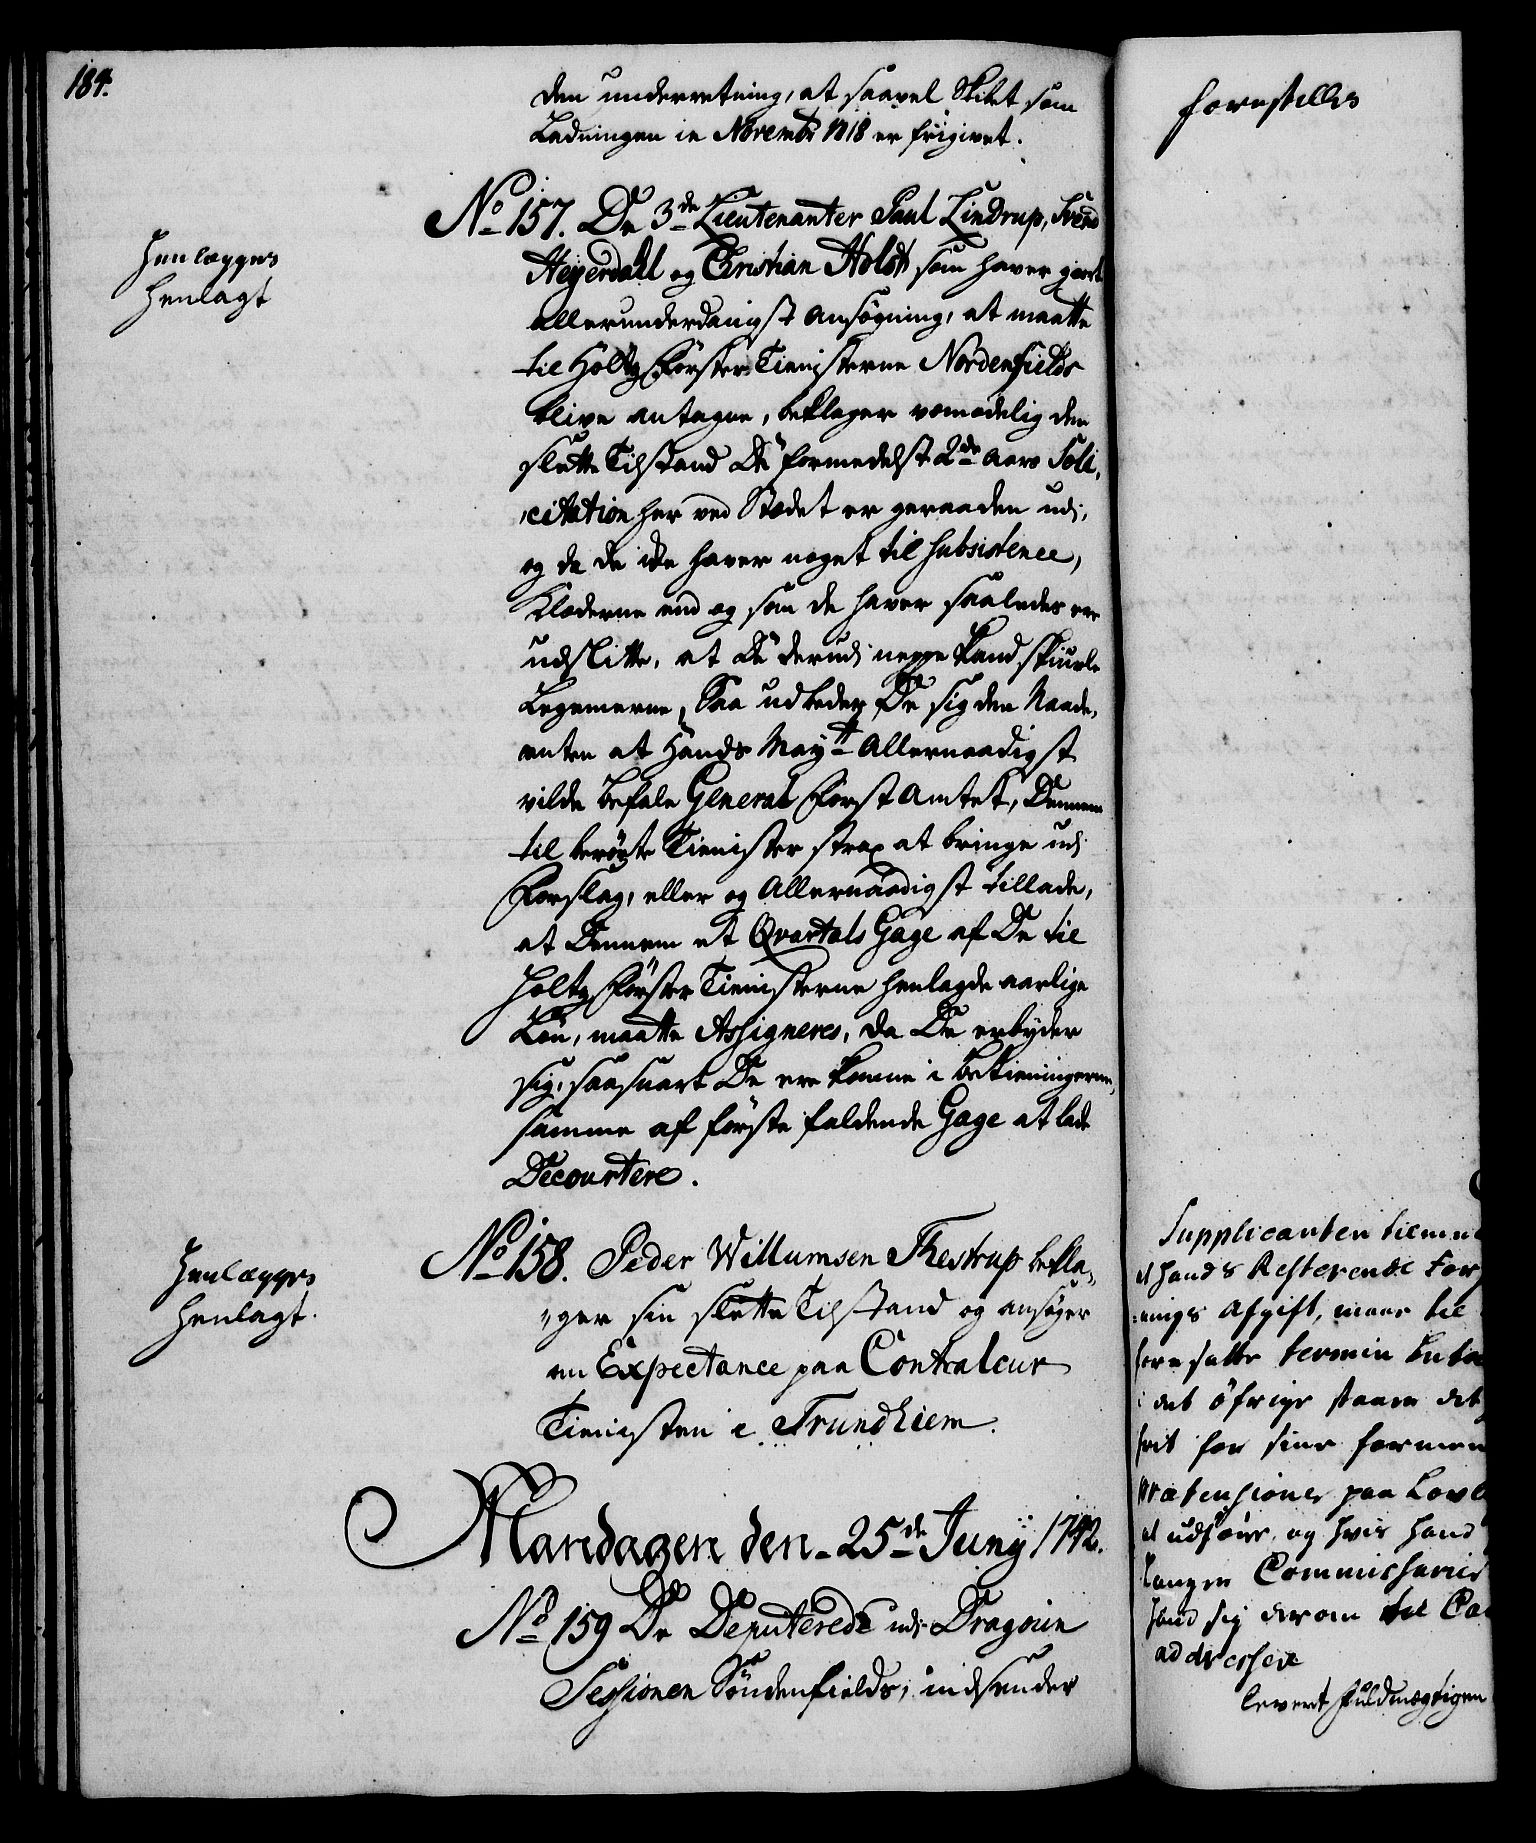 184.
den underretning, at saavel Skibet som
Ladningen in Novembr 1718 er frigivet.
No 157. De 3de Lieutenanter Paul Lindrup, Svend
Henlægges
henlagt
Heyerdahl og Christian Holst som haver giort
allerunderdanigst ansøgning, at maatte
til Holtz Førster Tienisterne Nordenfields
blive antagne, beklager vemodelig den
slette Tilstand De formedelst 2de aars Soli-
citation her ved Stædet er geraaden udi,
og da de icke haver noget til subsistence,
Klæderne end og som de haver saaledes ere
udslitte, at De derudi neppe kand skiule
Legemerne, Saa udbeder De sig den Naade,
enten at Hands Maytt Allernaadigst
vilde befale General Forst Amtet, Dennem
til berørte Tienister strax at bringe udi
Forslag, eller og Allernaadigst tillade,
at Dennem et Qvartals Gage af De til
Holtz Førster Tienisterne henlagde aarlige
Løn, maatte Assigneres, da De erbyder
sig, saasnart De ere komne i betieningerne,
samme af første faldende Gage at lade
Decourtere.
No 158. Peder Willumsen Thestrup bekla-
Henlægges
henlagt.
ger sin slette Tilstand og ansøger
om Expectance paa Contraleur
Tienisten i Trundhiem.
Mandagen den 25de Junij 1742.
No 159 De Deputerede udi Dragoun
Sessionen Søndenfields, indsender
forestilles
Supplicanten
at hands Resterende For
nings Afgift, inden til
foresatte termin
i det øfrige staaer det
frit for sine formeen
Prætensioner paa Lovl
at udføre og hvis hand
langer Commissarier
hand sig derom til Ca
addressere
leveret fuldmægtigen